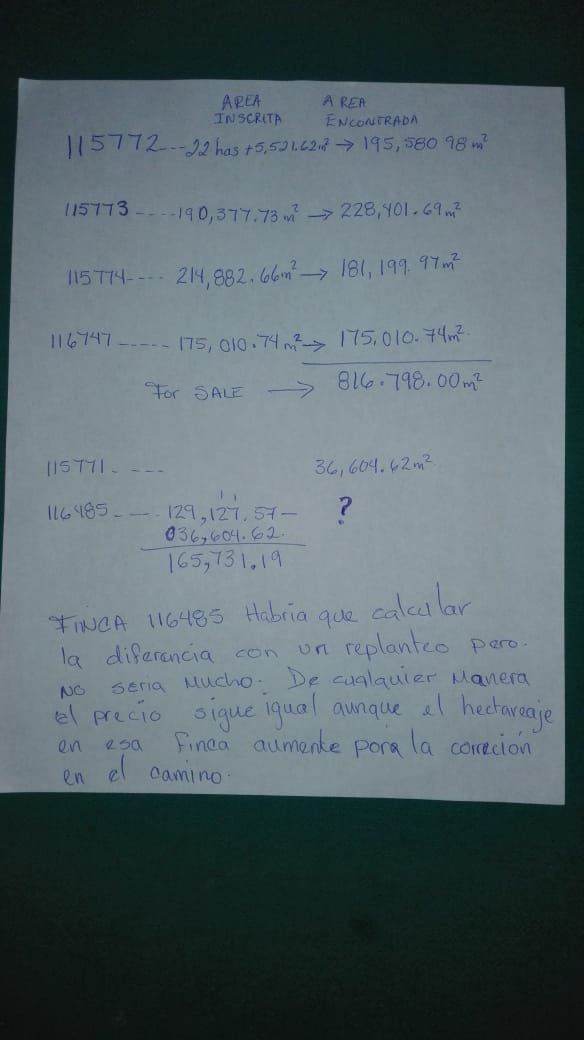 AREA INSCRITA
AREA ENCONTRADA
115772---22 has +5,521.62m² → 195,580 98 m²
115773 ----190,377.73 m² → 228,401.69m²
115774---- 214,882.66m² → 181,199.97m²
116747 ----- 175,010.74 m² → 175,010.74m².
For SALE → 816.798.00m²
115771. --- 36,604.62m²
116485---- 129,127.57- ?
036,604.62.
165,731.19
FINCA 116485 Habria que calcular
la diferencia con un replanteo pero.
NO seria Mucho. De cualquier Manera
el precio sigue igual aunque el hectareaje
en esa Finca aumente pora la correción
en el camino.